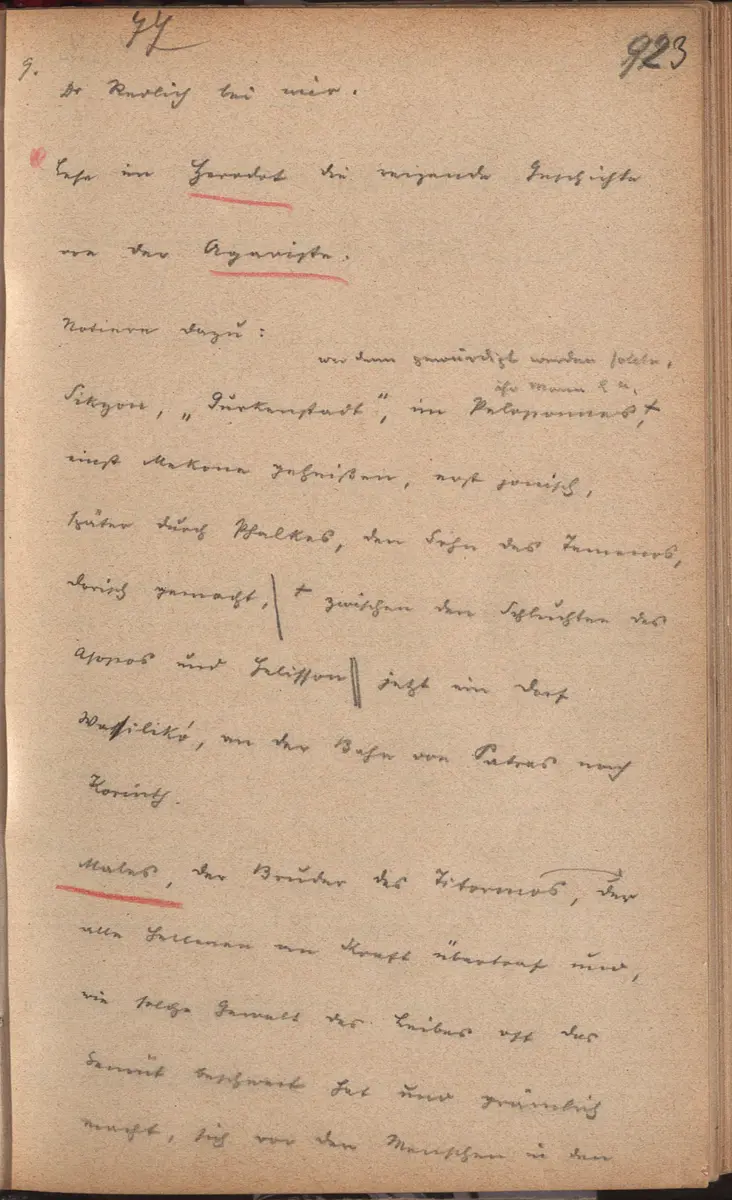 77
923
9.
Dr Redlich bei mir.
Lese im Herodot die reizende Geschichte
von der Agariste.
Notiere dazu:
wer denn gewürdigt werden sollte,
ihr Mann z u.
Sikyon, „Gurkenstadt", im Peloponnes,+
einst Mekone geheißen, erst jonisch,
später durch Phalkes, den Sohn des Temenos,
dorisch gemacht, + zwischen den Schluchten des
Asopos und Helisson jetzt ein Dorf
Wassilikó, an der Bahn von Patras nach
Korinth.
Males, der Bruder des Titormos, der
alle Hellenen an Kraft übertraf und,
wie solche Gewalt des Leibes oft das
Gemüt beschwert hat und grämlich
macht, sich vor den Menschen in den